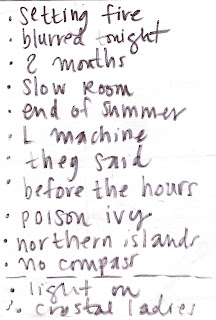 · setting fire
· blurred tonight
· 2 months
· slow room
· end of summer
· L machine
· they said
· before the hours
· poison ivy
· northern islands
· no compass
· light on
· crystal ladies